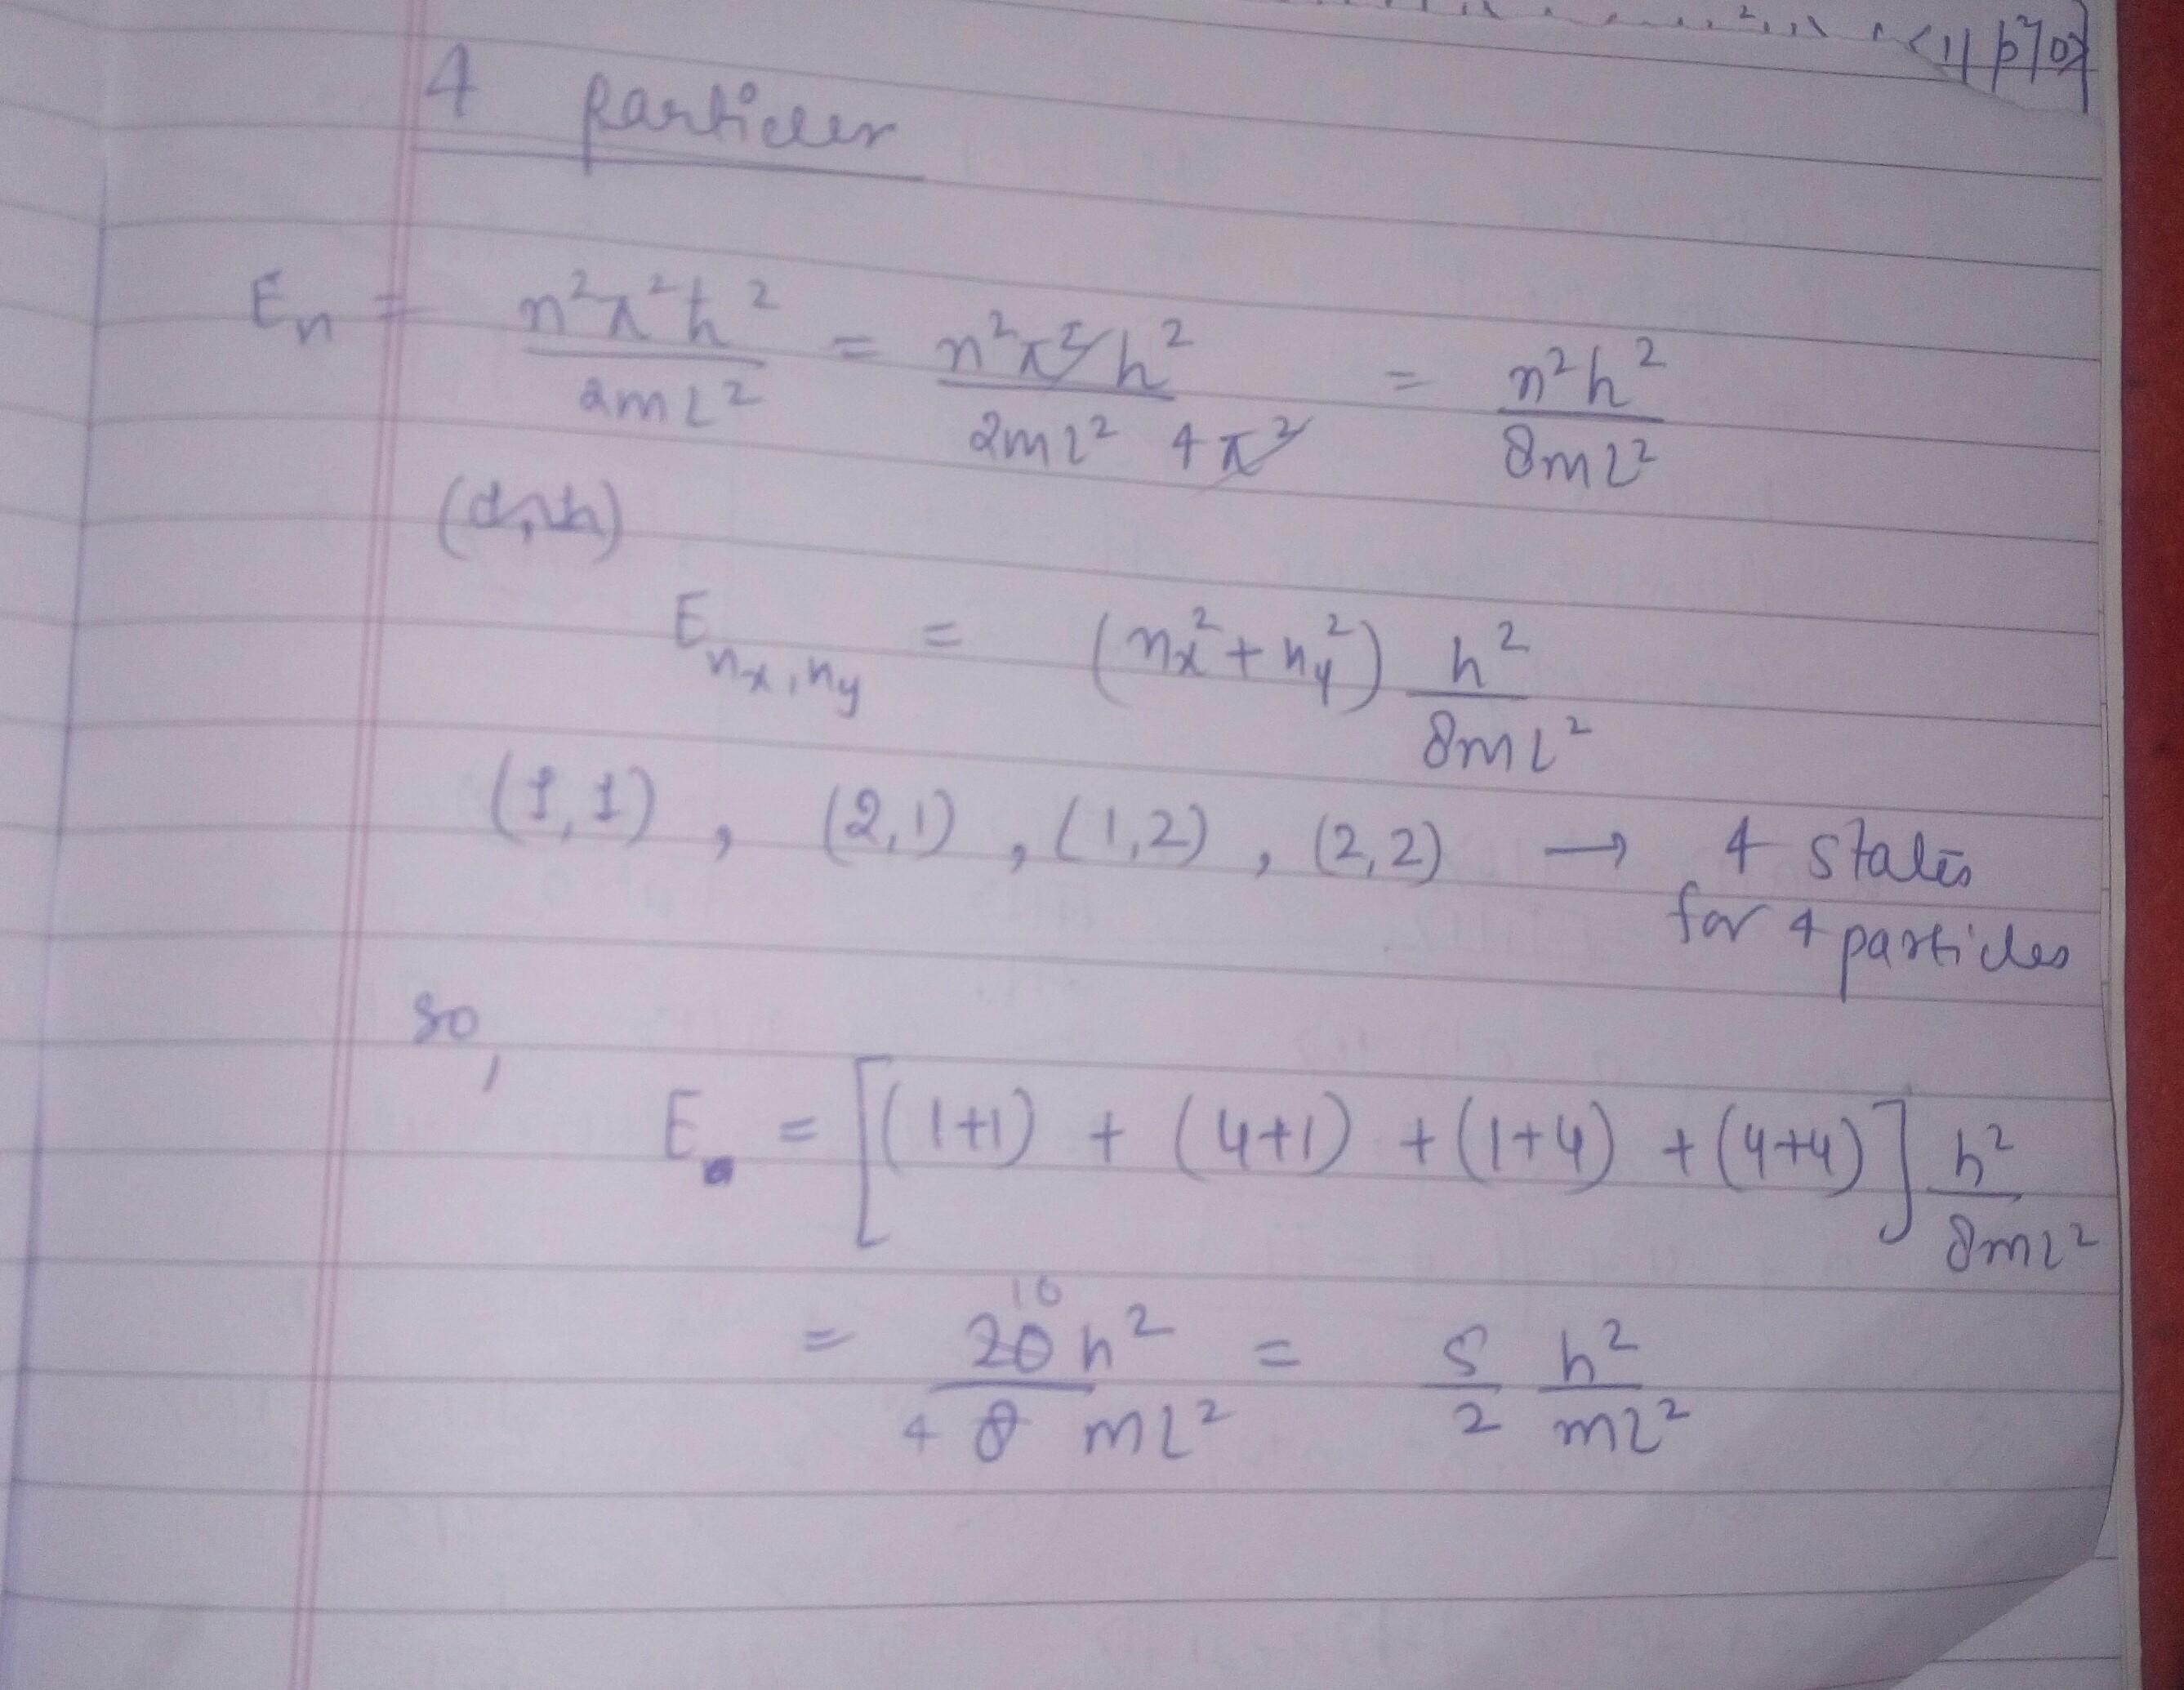 4 particles
En = n²π²ħ² / 2mL² = n²π²h² / 2mL² 4π² = n²h² / 8mL²
E nx,ny = (nx² + ny²) h² / 8mL²
(1,1) , (2,1) , (1,2) , (2,2) → 4 states
for 4 particles
so,
E = [(1+1) + (4+1) + (1+4) + (4+4)] h² / 8mL²
= 20 10 h² / 4 8 mL² = 5/2 h²/mL²